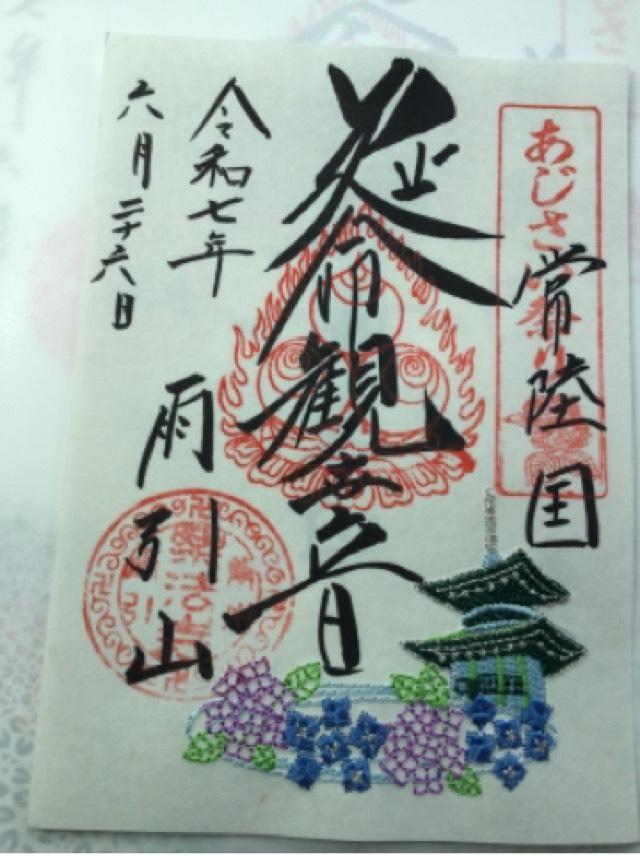 常陸国
延命観世音
雨引山
令和七年
六月二十六日